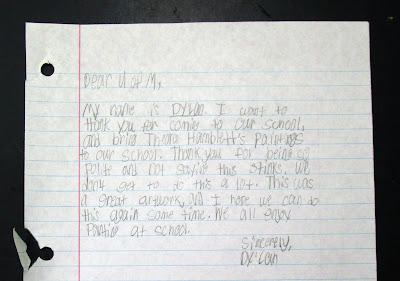 Dear U of M,
My name is Dylan. I want to
thank you for come to our school,
and bring Theora Hamblett's Paintings
to our school. Thank you for being so
polite and not saying this stinks. We
dont get to do this a lot. This was
a great artwork, and I hope we can do
this again some time. We all enjoy
at school.
Sincerely,
Dylan